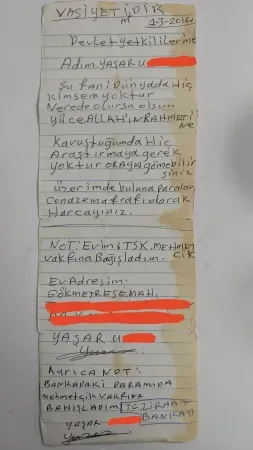 VASİYETİDİR
1-3-2014
Devlet yetkililerine
Adım. YAŞAR U
Şu fani Dünyada Hiç
kimsem yoktur
Nerede olursa olsun
yüce ALLAH'IN RAHMETİ
NE
Kavuştuğumda Hiç
Araştırmaya gerek
yoktur ORAYA gömebilir
siniz
üzerimde buluna paraları
cenaze masrafı olarak
Harcayınız.
NOT: Evimi TSK. MEHMET
CİK
Vakfına Bağışladım.
Ev Adresim:
GÖKMEYDEŞE MAH.
YAŞAR U
Ayrıca NOT:
BANKADAKİ PARAMIDA
mehmetçik VAKFINA
BAĞIŞLADIM TC ZİRAAT
BANKASI
YAŞAR